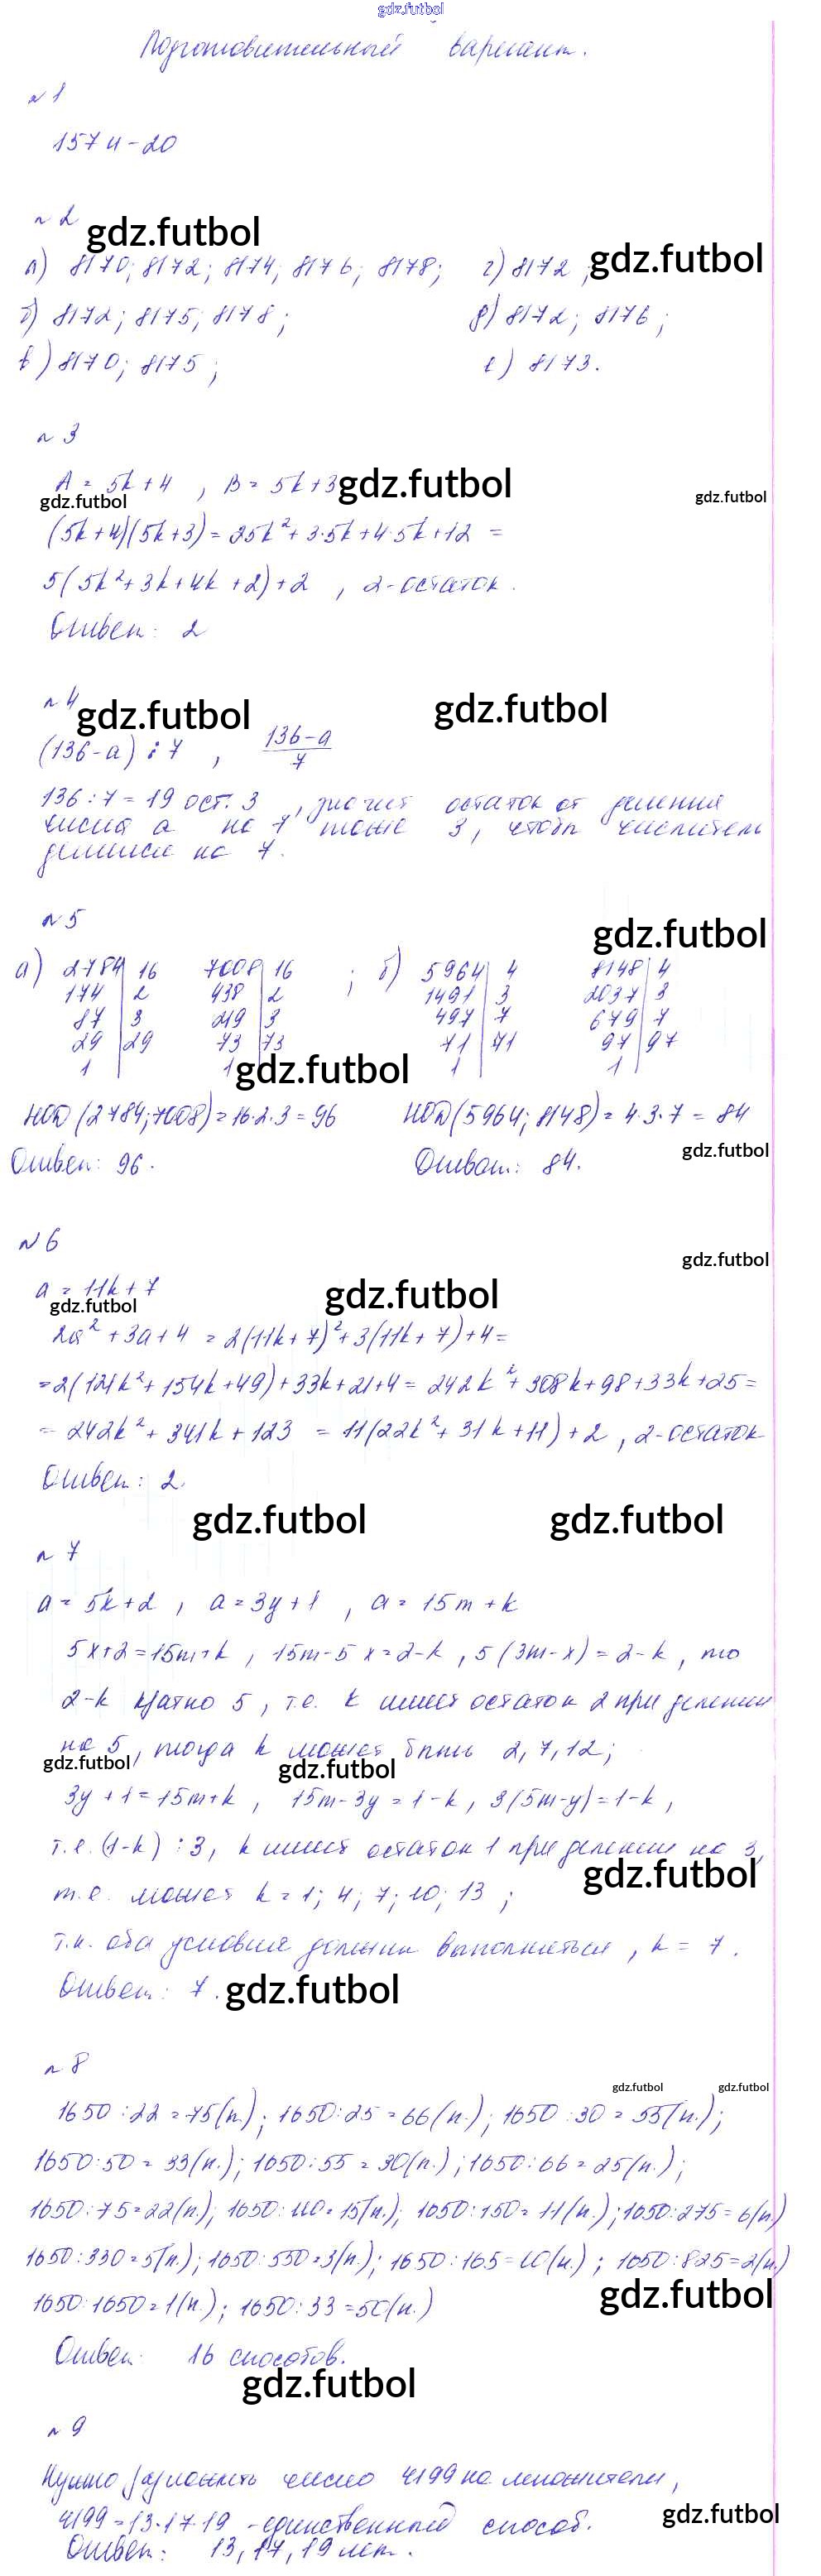 gdz.futbol
Подготовительный вариант.
№ 1
157 и -20
№ 2
gdz.futbol
а) 8170; 8172; 8174; 8176; 8178; г) 8172; gdz.futbol
б) 8172; 8175; 8178; д) 8172; 8176;
в) 8170; 8175; е) 8173.
№ 3
A = 5k + 4, B = 5k + 3 gdz.futbol
gdz.futbol gdz.futbol
(5k+4)(5k+3) = 25k² + 3·5k + 4·5k + 12 =
5(5k² + 3k + 4k + 2) + 2, 2 - остаток.
Ответ: 2
№ 4
gdz.futbol gdz.futbol
(136-a) ⋮ 7, (136-a)/7
136 : 7 = 19 ост. 3, значит остаток от деления
числа a на 7 тоже 3, чтобы числитель
делился на 7.
№ 5
gdz.futbol
а) 2784 | 16 7008 | 16 ; б) 5964 | 4 8148 | 4
174 | 2 438 | 2 1491 | 3 2037 | 3
87 | 3 219 | 3 497 | 7 679 | 7
29 | 29 73 | 73 71 | 71 97 | 97
1 1 1 1
gdz.futbol
НОД (2784; 7008) = 16·2·3 = 96 НОД (5964; 8148) = 4·3·7 = 84
gdz.futbol
Ответ: 96. Ответ: 84.
№ 6
gdz.futbol
a = 11k + 7 gdz.futbol
gdz.futbol
2a² + 3a + 4 = 2(11k + 7)² + 3(11k + 7) + 4 =
= 2(121k² + 154k + 49) + 33k + 21 + 4 = 242k² + 308k + 98 + 33k + 25 =
= 242k² + 341k + 123 = 11(22k² + 31k + 11) + 2, 2 - остаток
Ответ: 2.
gdz.futbol gdz.futbol
№ 7
a = 5k + 2, a = 3y + 1, a = 15m + k
5x + 2 = 15m + k, 15m - 5x = 2 - k, 5(3m - x) = 2 - k, то
2-k кратно 5, т.е. k имеет остаток 2 при делении
на 5, тогда k может быть 2, 7, 12;
gdz.futbol gdz.futbol
3y + 1 = 15m + k, 15m - 3y = 1 - k, 3(5m - y) = 1 - k,
т.е. (1-k) ⋮ 3, k имеет остаток 1 при делении на 3,
gdz.futbol
т.е. может k = 1; 4; 7; 10; 13;
т.к. оба условия должны выполняться, k = 7.
Ответ: 7. gdz.futbol
№ 8
gdz.futbol gdz.futbol
1650 : 22 = 75(п.); 1650 : 25 = 66(п.); 1650 : 30 = 55(п.);
1650 : 50 = 33(п.); 1650 : 55 = 30(п.); 1650 : 66 = 25(п.);
1650 : 75 = 22(п.); 1650 : 110 = 15(п.); 1650 : 150 = 11(п.); 1650 : 275 = 6(п.)
1650 : 330 = 5(п.); 1650 : 550 = 3(п.); 1650 : 165 = 10(п.); 1650 : 825 = 2(п.)
gdz.futbol
1650 : 1650 = 1(п.); 1650 : 33 = 50(п.)
Ответ: 16 способов.
gdz.futbol
№ 9
Нужно разложить число 4199 на множители,
gdz.futbol
4199 = 13·17·19 - единственный способ.
Ответ: 13, 17, 19 лет.